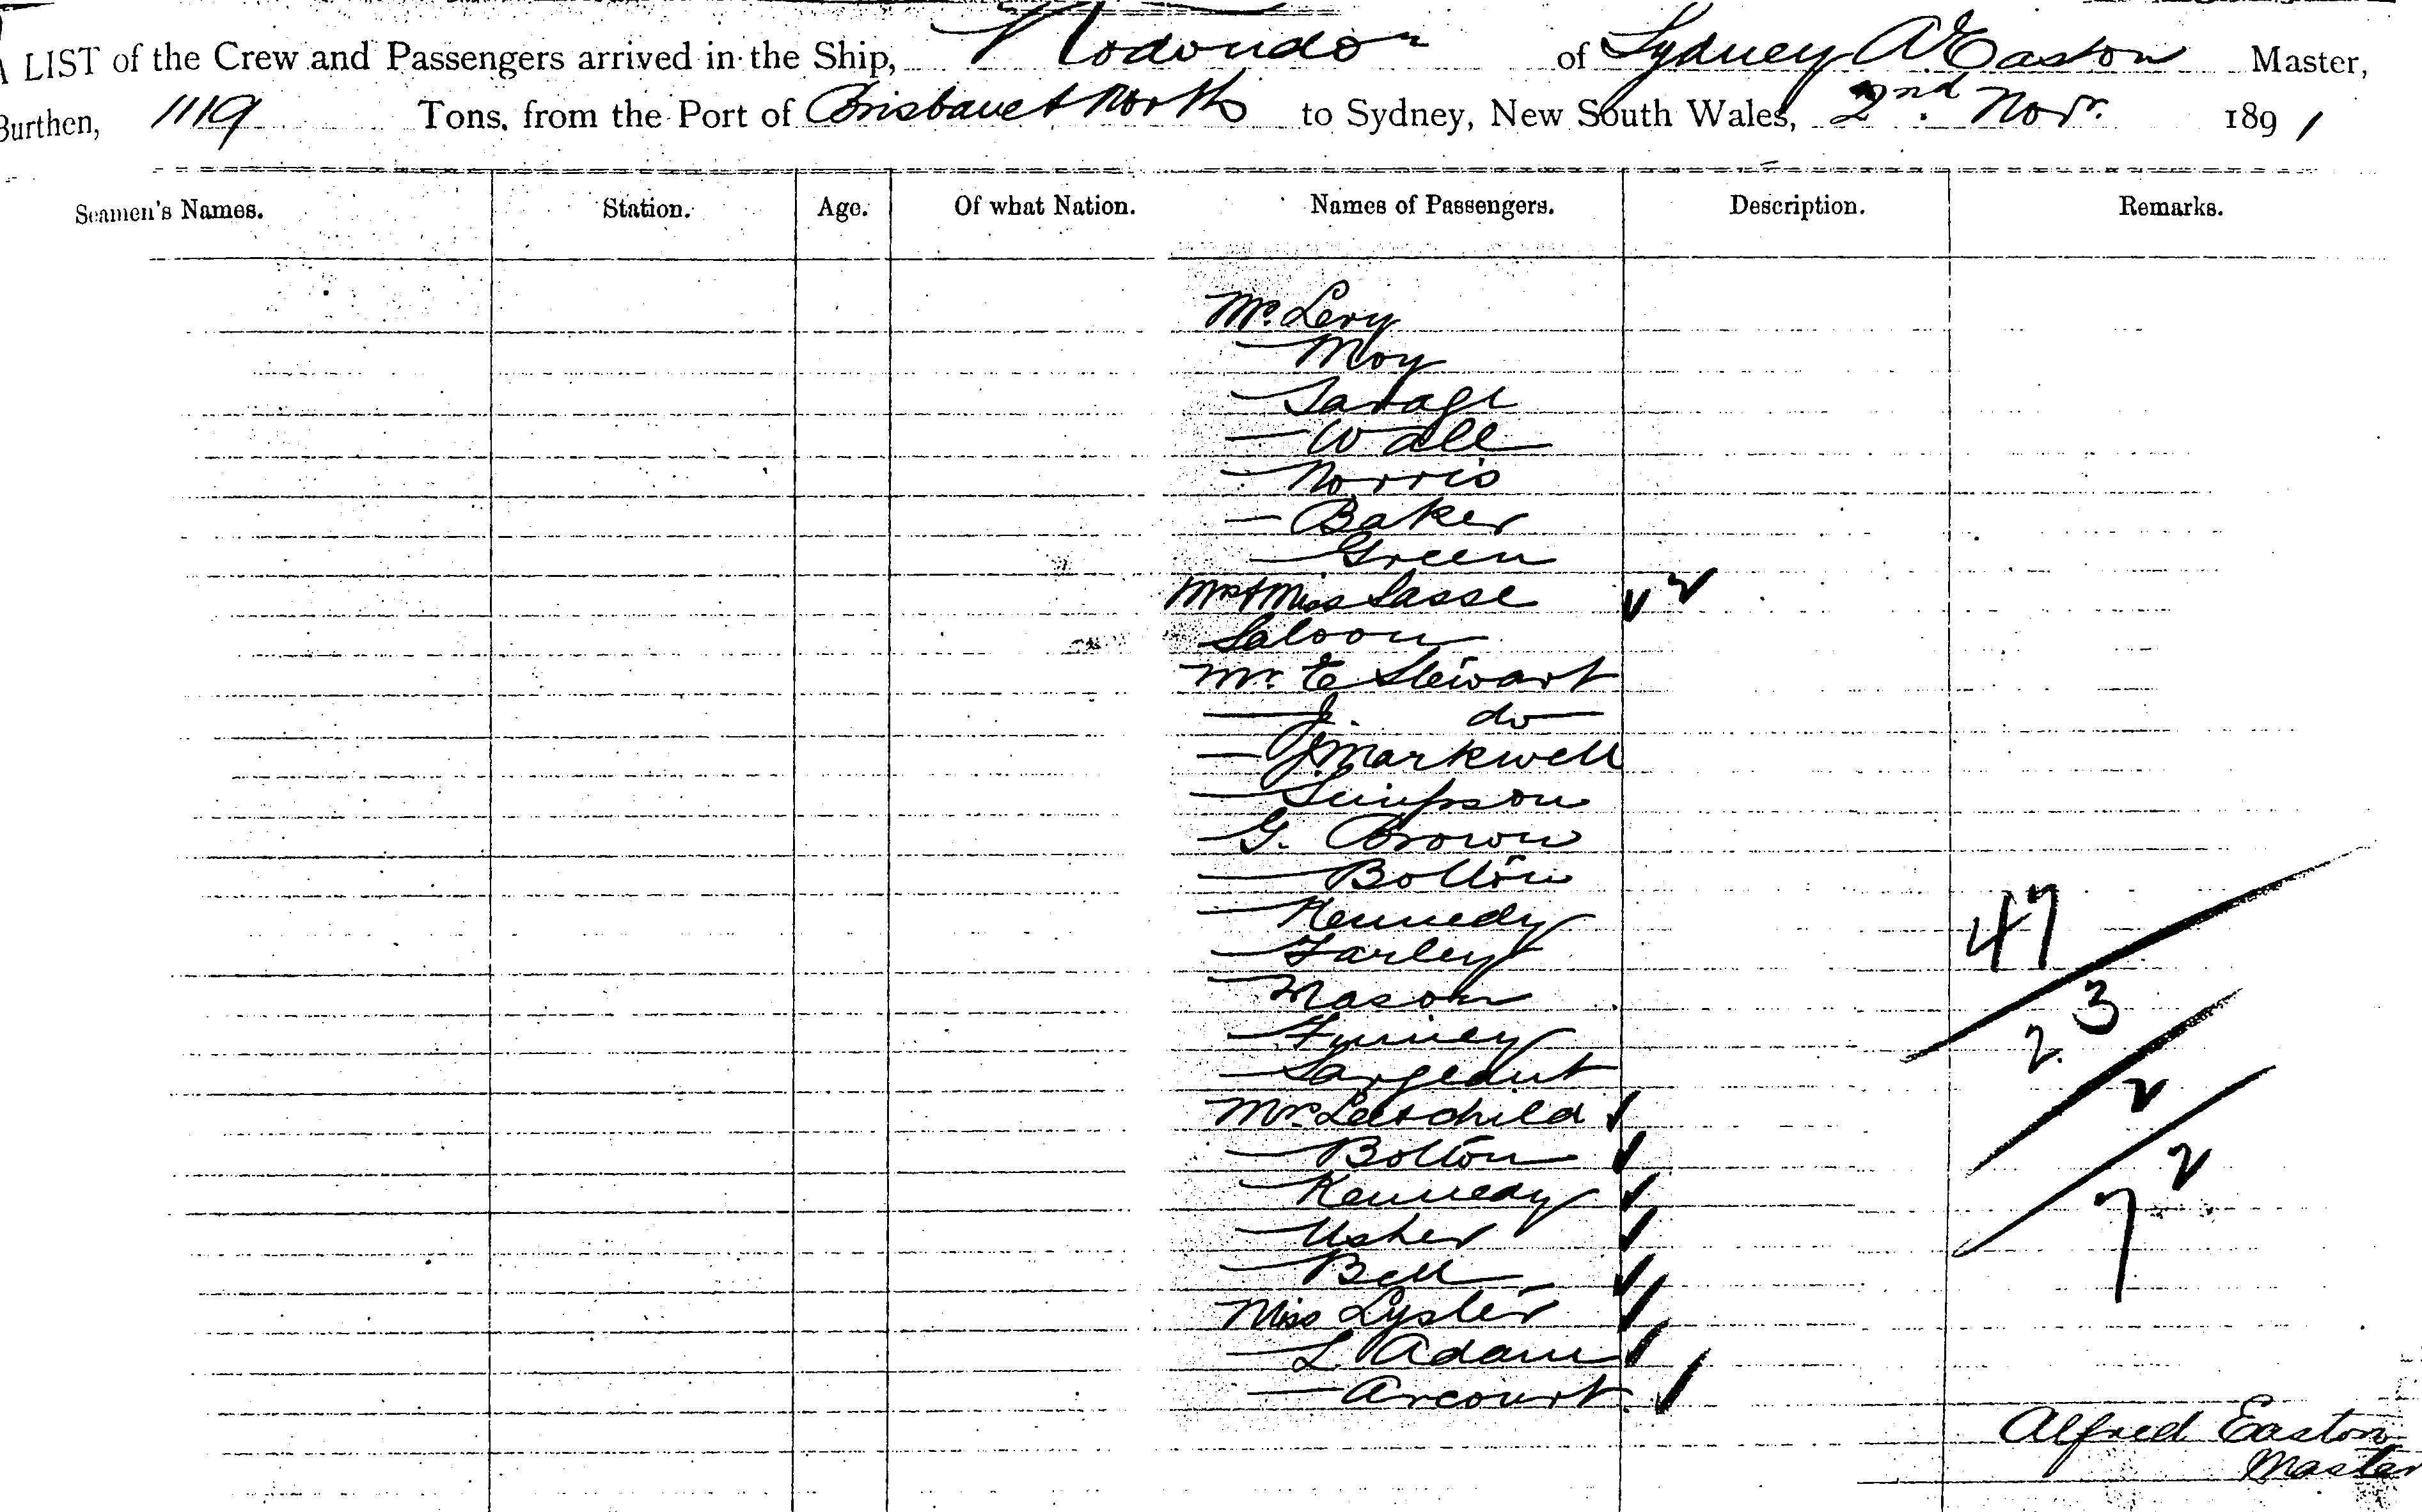 A LIST of the Crew and Passengers arrived in the Ship, Rodondo of Sydney A Easton Master,
Burthen, 1119 Tons, from the Port of Brisbane & North to Sydney, New South Wales, 2nd Novr. 1891
Seamen's Names. Station. Age. Of what Nation. Names of Passengers. Description. Remarks.
Mr. Levy
— Moy
— Savage
— Wall
— Norris
— Baker
— Green
Mrs & Miss Sasse
Saloon
Mr. E Stewart
— J. do
— J. Markwell
— Simpson
— G. Brown
— Bolton
— Kennedy
— Farley
— Mason
— Sargeant
Mrs. & child
— Bolton
— Kennedy
— Usher
— Bell
Miss Lyster
— L Adam
— Arcourt
47
3
2
2
2
7
Alfred Easton
Master